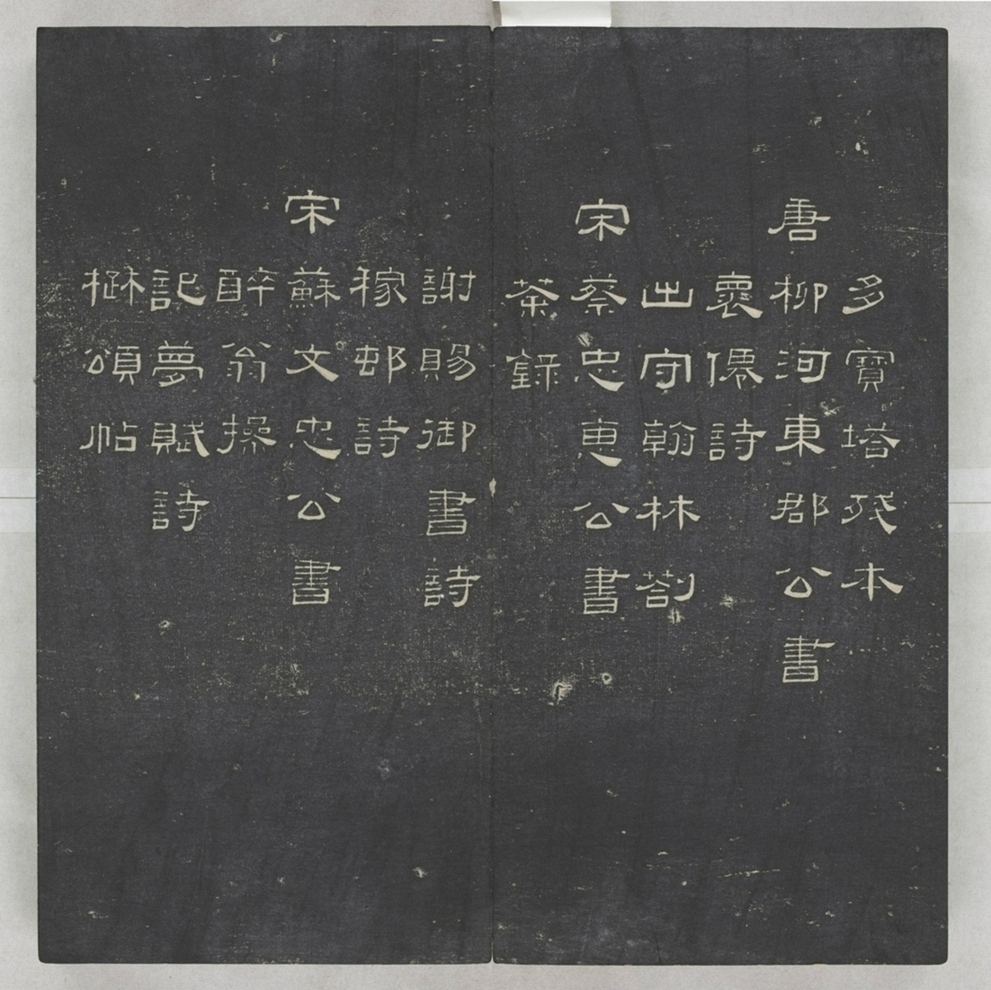 多寶塔殘本
唐柳河東郡公書
褱詩
出守翰林劄
宋蔡忠惠公書
茶錄
謝賜御書詩
稼邨詩
宋蘇文忠公書
醉翁操
記夢賦詩
楚頌帖